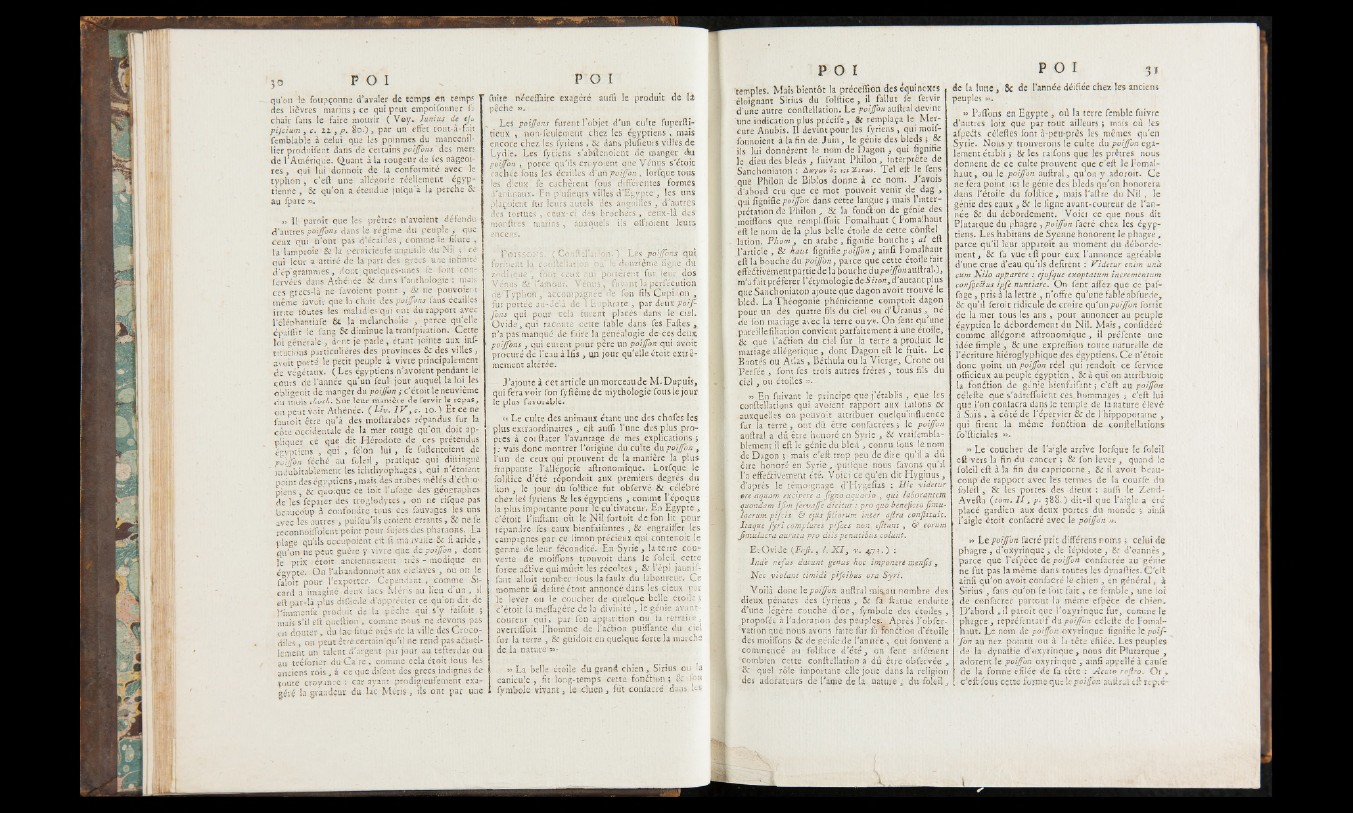 30 P O I
qu'on le ſoupçonne d'avaler de temps en temps
des lièvres marins; ce qui peut empoiſonner ſa
chair ſans le faire mourir ( Voy. Junius de eſu
piſcium, c. 22, p. 80.), par un effet tout-à-fait
ſemblable à celui que les pommes du mancenil-
lier produiſent dans de certains poiſſons des mers
de l'Amérique. Quant à la rougeur de ſes nageoi-
res, qui lui donnoit de la conformité avec le
typhon, c'eſt une allégorie réellement égyp-
tienne, & qu'on a étendue juſqu'à la perche &
au ſpare ».
» Il paroît que les prêtres n'avoient défendu
d'autres poiſſons dans le régime du peuple, que
ceux qui n'ont pas d'écailles, comme le ſilure,
la lamproie & la pernicieuſe anguille du Nil; ce
qui leur a attiré de la part des grecs une infinité
d'épigrammes, dont quelques-unes ſe ſont con-
ſervées dans Athénée & dans l'anthologie: mais
ces grecs-là ne ſavoient point, & ne pouvoient
même ſavoir que la chair des poiſſons ſans écailles
irrite toutes les maladies qui ont du rapport avec
l'éléphantiaſe & la mélancholie, parce qu'elle
épaiſſit le ſang & diminue la tranſpiration. Cette
loi générale, dont je parle, étant jointe aux inſ-
titutions particulières des provinces & des villes,
avoit porté le petit peuple à vivre principalement
de végétaux. ( Les égyptiens n'avoient pendant le
cours de l'année qu'un ſeul jour auquel la loi les
obligeoit de manger du poiſſon; c'étoit le neuvième
du mois thoth. Sur leur manière de ſervir le repas,
on peut voir Athénée. ( Liv. IV, c. 10. ) Et ce ne
ſauroit être qu'à des moſtarabes répandus ſur la
côte occidentale de la mer rouge qu'on doit ap-
pliquer ce que dit Hérodote de ces prétendus
égyptiens, qui, ſelon lui, ſe ſuſtentoient de
poiſſon ſéché au ſoleil, pratique qui diſtingue
indubitablement les ichthyophages, qui n'étoient
point des égyptiens, mais des arabes mêlés d'éthio-
piens, & quoique ce ſoit l'uſage des géographes
de les ſéparer des troglodytes, on ne riſque pas
beaucoup à confondre tous ces ſauvages les uns
avec les autres, puiſqu'ils étoient errants, & ne ſe
reconnoiſſoient point pour ſujets des pharaons. La
plage qu'ils occupoient eſt ſi mauvaiſe & ſi aride,
qu'on ne peut guère y vivre que de poiſſon, dont
le prix étoit anciennement très-modique en
égypte. On l'abandonnoit aux eſclaves, ou on le
ſaloit pour l'exporter. Cependant, comme Si-
card a imaginé deux lacs Méris au lieu d'un, il
eſt par-là plus difficile d'apprécier ce qu'on dit de
l'immenſe produit de la pêche qui s'y faiſoit;
mais s'il eſt queſtion, comme nous ne devons pas
en douter, du lac ſitué près de la ville des Croco-
diles, on peut être certain qu'il ne rend pas actuel-
lement un talent d'argent par jour au tefterdar ou
au tréſorier du Caire, comme cela étoit ſous les
anciens rois, à ce que diſent des grecs indignes de
toute croyance: car ayant prodigieuſement exa-
géré la grandeur du lac Méris, ils ont par une
P O I
ſuite néceſſaire exagéré auſſi le produit de la
pêche ».
Les poiſſons furent l'objet d'un culte ſuperſti-
tieux, non-ſeulement chez les égyptiens, mais
encore chez les ſyriens, & dans pluſieurs villes de
Lydie. Les ſyriens s'abſtenoient de manger du
poiſſon, parce qu'ils croyoient que Vénus s'étoit
cachée ſous les écailles d'un poiſſon, lorſque tous
les dieux ſe cachèrent ſous différentes formes
d'animaux. En pluſieurs villes d'Egypte, les uns
plaçoient ſur leurs autels des anguilles, d'autres
des tortues, ceux-ci des brochets, ceux-là des
monſtres marins, auxquels ils offroient leurs
encens.
Poissons. (Conſtellation.) Les poiſſons qui
forment la conſtellation ou le douzième ſigne du
zodiaque, ſont ceux qui portèrent ſur leur dos
Vénus & l'amour. Vénus, fuyant la perſécution
de Typhon, accompagnée de ſon fils Cupidon,
fut portée au-delà de l'Euphrate, par deux poiſ-
ſons qui pour cela furent placés dans le ciel.
Ovide, qui raconte cette fable dans ſes Faſtes,
n'a pas manqué de faire la généalogie de ces deux
poiſſons, qui eurent pour père un poiſſon qui avoit
procuré de l'eau à Iſis, un jour qu'elle étoit extrê-
mement altérée.
J'ajoute à cet article un morceau de M. Dupuis,
qui fera voir ſon ſyſtême de mythologie ſous le jour
le plus favorable.
« Le culte des animaux étant une des choſes les
plus extraordinaires, eſt auſſi l'une des plus pro-
pres à conſtater l'avantage de mes explications;
je vais donc montrer l'origine du culte du poiſſon,
l'un de ceux qui prouvent de la manière la plus
frappante l'allégorie aſtronomique. Lorſque le
ſolſtice d'été répondoit aux premiers degrés du
lion, le jour du ſolſtice fut obſervé & célébré
chez les ſyriens & les égyptiens, comme l'époque
la plus importante pour le cultivateur. En Egypte,
c'étoit l'inſtant où le Nil ſortoit de ſon lit pour
répandre ſes eaux bienfaiſantes, & engraiſſer les
campagnes par ce limon précieux qui contenoit le
germe de leur fécondité. En Syrie, la terre cou-
verte de moiſſons trouvoit dans le ſoleil cette
force active qui mûrit les récoltes, & l'épi jauniſ-
ſant alloit tomber ſous la faulx du laboureur. Ce
moment ſi deſiré étoit annoncé dans les cieux par
le lever ou le coucher de quelque belle étoile;
c'étoit la meſſagère de la divinité, le génie avant-
coureur qui, par ſon apparition ou ſa retraite,
avertiſſoit l'homme de l'action puiſſante du ciel
ſur la terre, & guidoit en quelque ſorte la marche
de la nature ».
» La belle étoile du grand chien, Sirius ou la
canicule, fit long-temps cette fonction; & ſon
ſymbole vivant, le chien, fut conſacré dans les
P O I
temples. Mais bientôt la préceſſion des équinoxes
éloignant Sirius du ſolſtice, il fallut ſe ſervir
d'une autre conſtellation. Le poiſſon auſtral devint
une indication plus préciſe, & remplaça le Mer-
cure Anubis. Il devint pour les ſyriens, qui moiſ-
ſonnoient à la fin de Juin, le génie des bleds; &
ils lui donnèrent le nom de Dagon, qui ſignifie
le dieu des bleds, ſuivant Philon, interprète de
Sanchoniaton: Δαγων ὅς ἐστι Σίτων. Tel eſt le ſens
que Philon de Biblos donne à ce nom. J'avois
d'abord cru que ce mot pouvoit venir de dag,
qui ſignifie poiſſon dans cette langue; mais l'inter-
prétation de Philon, & la fonction de génie des
moiſſons que rempliſſoit Fomalhaut ( Fomalhaut
eſt le nom de la plus belle étoile de cette conſtel-
lation. Phom, en arabe, ſignifie bouche; al eſt
l'article, & haut ſignifie poiſſon; ainſi Fomalhaut
eſt la bouche du poiſſon, parce que cette étoile fait
effectivement partie de la bouche du poiſſon auſtral.),
m'a fait préférer l'étymologie de Siton, d'autant plus
que Sanchoniaton ajoute que dagon avoit trouvé le
bled. La Théogonie phénicienne comptoit dagon
pour un des quatre fils du ciel ou d'Uranus, né
de ſon mariage avec la terre ou γῆ. On ſent qu'une
pareille filiation convient parfaitement à une étoile,
& que l'action du ciel ſur la terre a produit le
mariage allégorique, dont Dagon eſt le fruit. Le
Bootès ou Atlas, Béthula ou la Vierge, Crone ou
Perſée, ſont ſes trois autres frères, tous fils du
ciel, ou étoiles ».
» En ſuivant le principe que j'établis, que les
conſtellations qui avoient rapport aux ſaiſons &
auxquelles on pouvoit attribuer quelqu'influence
ſur la terre, ont dû être conſacrées; le poiſſon
auſtral a dû être honoré en Syrie, & vraiſembla-
blement il eſt le génie du bled, connu ſous le nom
de Dagon; mais c'eſt trop peu de dire qu'il a dû
être honoré en Syrie, puiſque nous ſavons qu'il
l'a effectivement été. Voici ce qu'en dit Hyginus,
d'après le témoignage d'Hygeſias: Hic videtur
ore aquam excipere a ſigno aquario, qui laborantem
quondam Iſim ſervaſſe dicitur: pro quo beneficio ſimu-
lacrum piſcis & ejus filiorum inter aſtra conſtituit.
Itaque ſyri complures piſces non eſitant, & eorum
ſimulacra aurata pro diis penatibus colunt.
Et Ovide (Faſt., l. XI, v. 473.) :
Inde nefas ducunt genus hoc imponere menſis,
Nec violant timidi piſcibus ora Syri.
Voilà donc le poiſſon auſtral mis au nombre des
dieux pénates des ſyriens, & ſa ſtatue enduite
d'une légère couche d'or, ſymbole des étoiles,
propoſée à l'adoration des peuples. Après l'obſer-
vation que nous avons faite ſur ſa fonction d'étoile
des moiſſons & de génie de l'année, qui ſouvent a
commencé au ſolſtice d'été, on ſent aiſément
combien cette conſtellation a dû être obſervée,
& quel rôle important elle joue dans la religion
des adorateurs de l'âme de la nature, du ſoleil,
P O I 31
de la lune, & de l'année déifiée chez les anciens
peuples ».
» Paſſons en Egypte, où la terre ſemble ſuivre
d'autres loix que par tout ailleurs; mais où les
aſpects céleſtes ſont à-peu-près les mêmes qu'en
Syrie. Nous y trouverons le culte du poiſſon éga-
lement établi; & les raiſons que les prêtres nous
donnent de ce culte prouvent que c'eſt le Fomal-
haut, ou le poiſſon auſtral, qu'on y adoroit. Ce
ne ſera point ici le génie des bleds qu'on honorera
dans l'étoile du ſolſtice, mais l'aſtre du Nil, le
génie des eaux, & le ſigne avant-coureur de l'an-
née & du débordement. Voici ce que nous dit
Plutarque du phagre, poiſſon ſacré chez les égyp-
tiens. Les habitans de Syenne honorent le phagre,
parce qu'il leur apparoît au moment du déborde-
ment, & ſa vue eſt pour eux l'annonce agréable
d'une crue d'eau qu'ils deſirent : Videtur enim unà
cum Nilo apparere : ejuſque exoptatum incrementum
conſpectus ipſe nuntiare. On ſent aſſez que ce paſ-
ſage, pris à la lettre, n'offre qu'une fable abſurde,
& qu'il ſeroit ridicule de croire qu'un poiſſon ſortît
de la mer tous les ans, pour annoncer au peuple
égyptien le débordement du Nil. Mais, conſidéré
comme allégorie aſtronomique, il préſente une
idée ſimple, & une expreſſion toute naturelle de
l'écriture hiéroglyphique des égyptiens. Ce n'étoit
donc point un poiſſon réel qui rendoit ce ſervice
officieux au peuple égyptien, & à qui on attribuoit
la fonction de génie bienfaiſant; c'eſt au poiſſon
céleſte que s'adreſſoient ces hommages; c'eſt lui
que l'on conſacra dans le temple de la nature élevé
à Saïs, à côté de l'épervier & de l'hippopotame,
qui firent la même fonction de conſtellations
ſolſticiales ».
» Le coucher de l'aigle arrive lorſque le ſoleil
eſt vers la fin du cancer; & ſon lever, quand le
ſoleil eſt à la fin du capricorne, & il avoit beau-
coup de rapport avec les termes de la courſe du
ſoleil, & les portes des dieux : auſſi le Zend-
Aveſta (tom. II, p. 388.) dit-il que l'aigle a été
placé gardien aux deux portes du monde; ainſi
l'aigle étoit conſacré avec le poiſſon ».
» Le poiſſon ſacré prit différens noms; celui de
phagre, d'oxyrinque, de lépidote, & d'oannès,
parce que l'eſpèce de poiſſon conſacrée au génie
ne fut pas la même dans toutes les dynaſties. C'eſt
ainſi qu'on avoit conſacré le chien, en général, à
Sirius, ſans qu'on ſe ſoit fait, ce ſemble, une loi
de conſacrer partout la même eſpèce de chien.
D'abord, il paroît que l'oxyrinque fut, comme le
phagre, repréſentatif du poiſſon céleſte de Fomal-
haut. Le nom de poiſſon oxyrinque ſignifie le poiſ-
ſon au nez pointu ou à la tête effilée. Les peuples
de la dynaſtie d'oxyrinque, nous dit Plutarque,
adorent le poiſſon oxyrinque, ainſi appellé à cauſe
de la forme effilée de ſa tête : Acuto roſtro. Or,
c'eſt ſous cette forme que le poiſſon auſtral eſt repré-